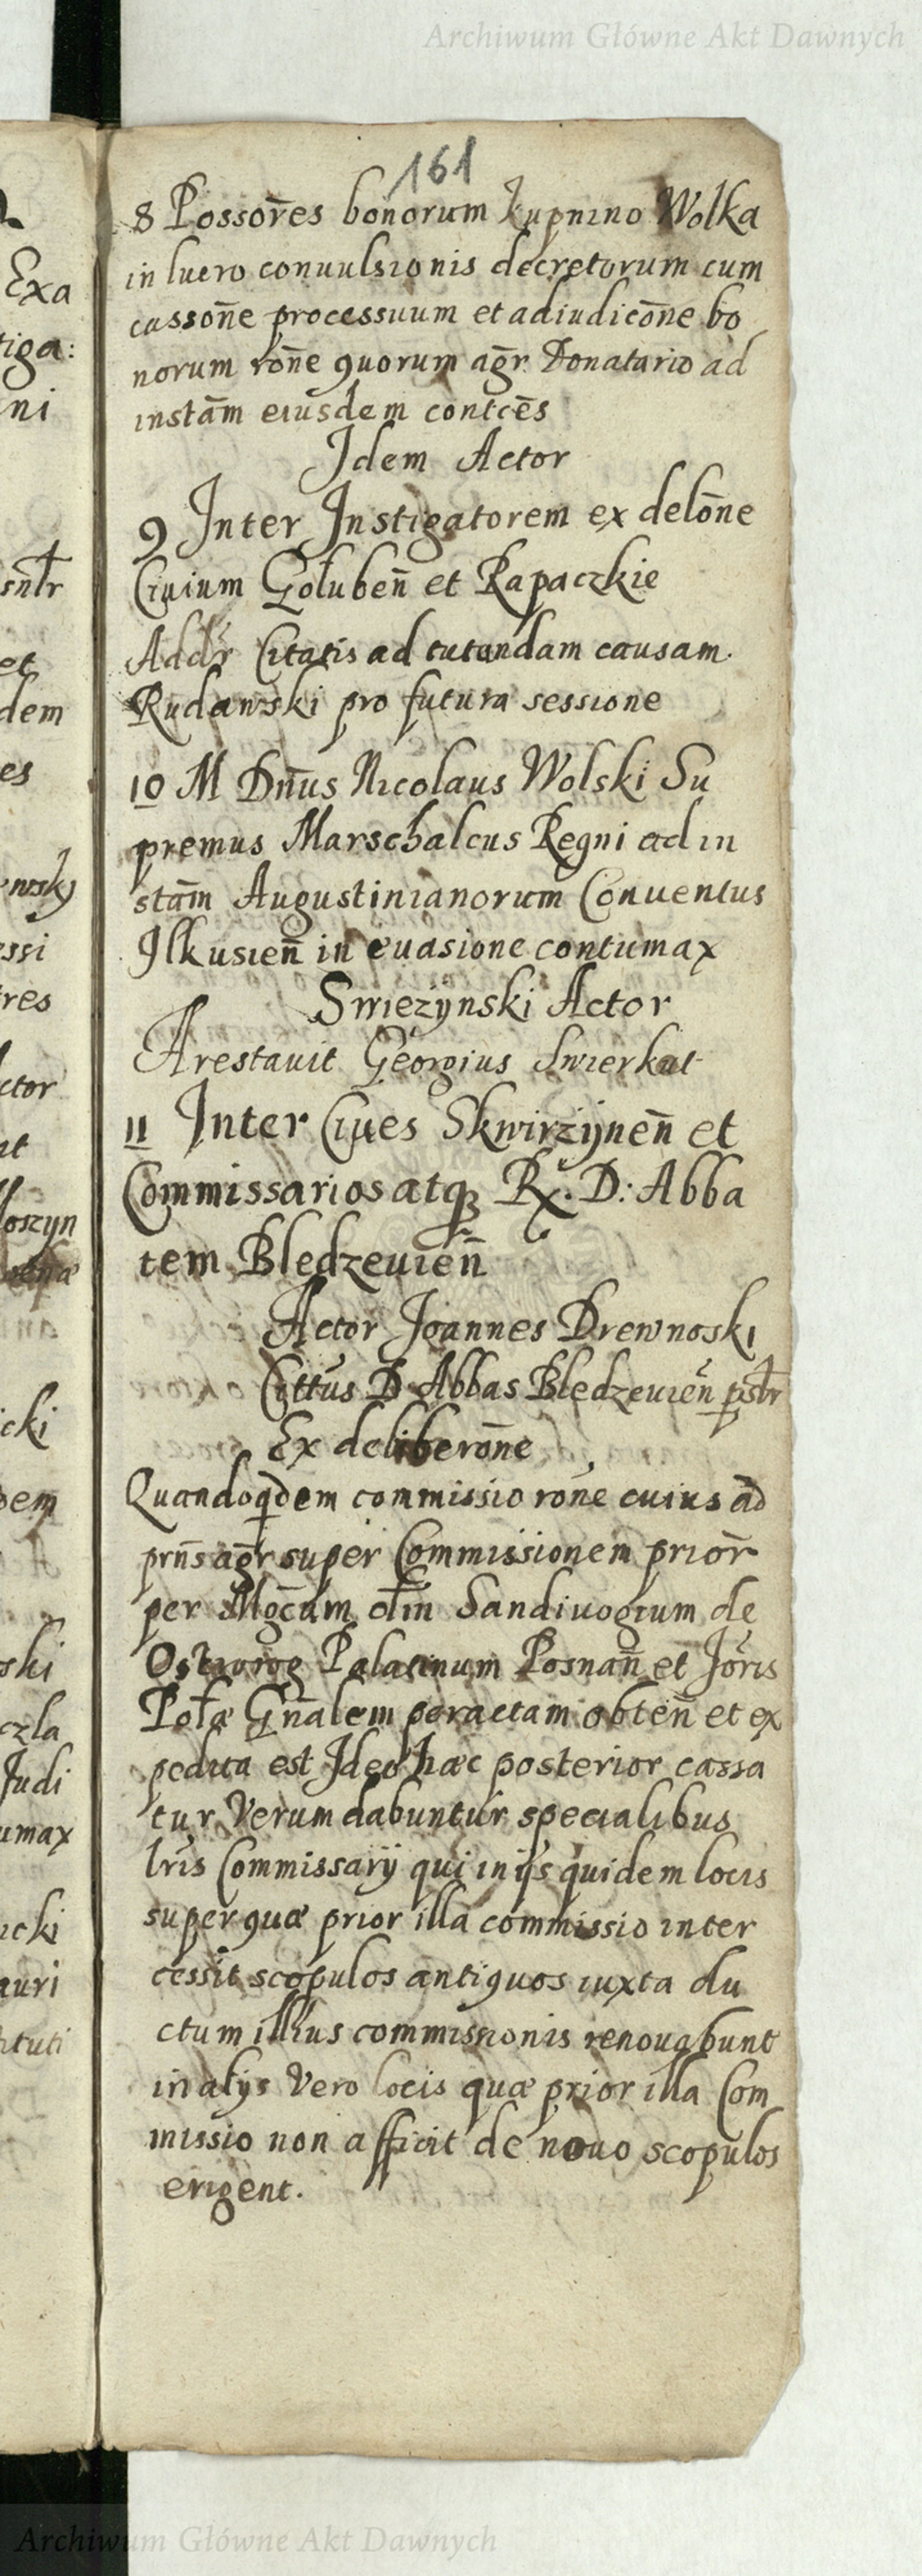 Archiwum Główne Akt Dawnych
161
8 Possores bonorum Kupnino Wolka
in lucro conuulsionis decretorum cum
cassoñe processuum et adiudicoñe bo
norum roñe quorum agr̃ Donatario ad
instam̃ eiusdem contces̃
Idem Actor
9 Inter Instigatorem ex deloñe
Ciuium Gołubeñ et Rapaczkie
Addr̃ Citatis ad tutandam causam.
Rudawski pro futura sessione
10 M Dñus Nicolaus Wolski Su
premus Marschalcus Regni ad in
stam̃ Augustinianorum Conuentus
Ilkusieñ in euasione contumax
Swiezynski Actor
Arestauit Georgius Swierkat
11 Inter Ciues Skwirzÿneñ et
Commissarios atq; Rx. D: Abba
tem Bledzeuieñ
Actor Joannes Drewnoski
Cittus D Abbas Bledzeuieñ pstr̃
Ex deliberoñe
Quandoqdem commissio roñe cuius ad
prñs agr̃ super Commissionem prior̃
per Mgcum̃ olim̃ Sandiuogium de
Ostrorog Palatinum Posnañ et Joris̃
Polæ Gñalem peractam obteñ et ex
pedita est Ideo hæc posterior cassa
tur. Verum dabuntur specialibus
lris̃ Commissarÿ qui in ÿs quidem locis
super quæ prior illa commissio inter
cessit scopulos antiquos iuxta du
ctum illius commissionis renouabunt
in alÿs Vero locis quæ prior illa Com
missio non afficit de nouo scopulos
erigent.
Archiwum Główne Akt Dawnych